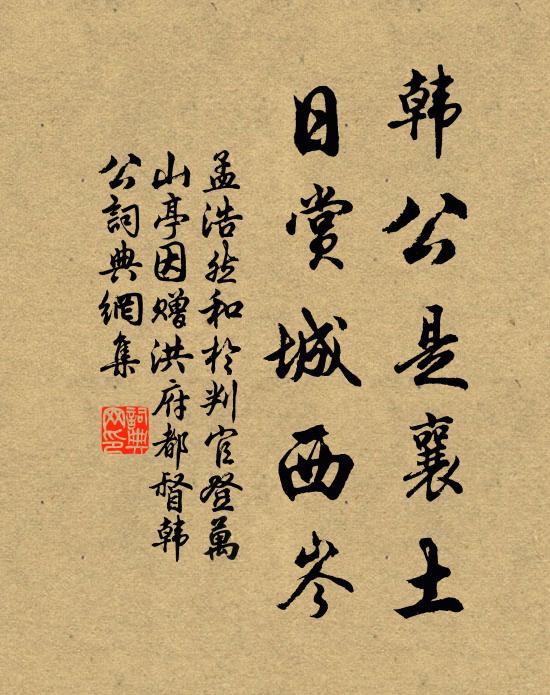 韩公是襄土
日赏城西岑
孟浩然和於判官登萬
山亭因赠洪府都督韩
公詞典網集
詞典网印